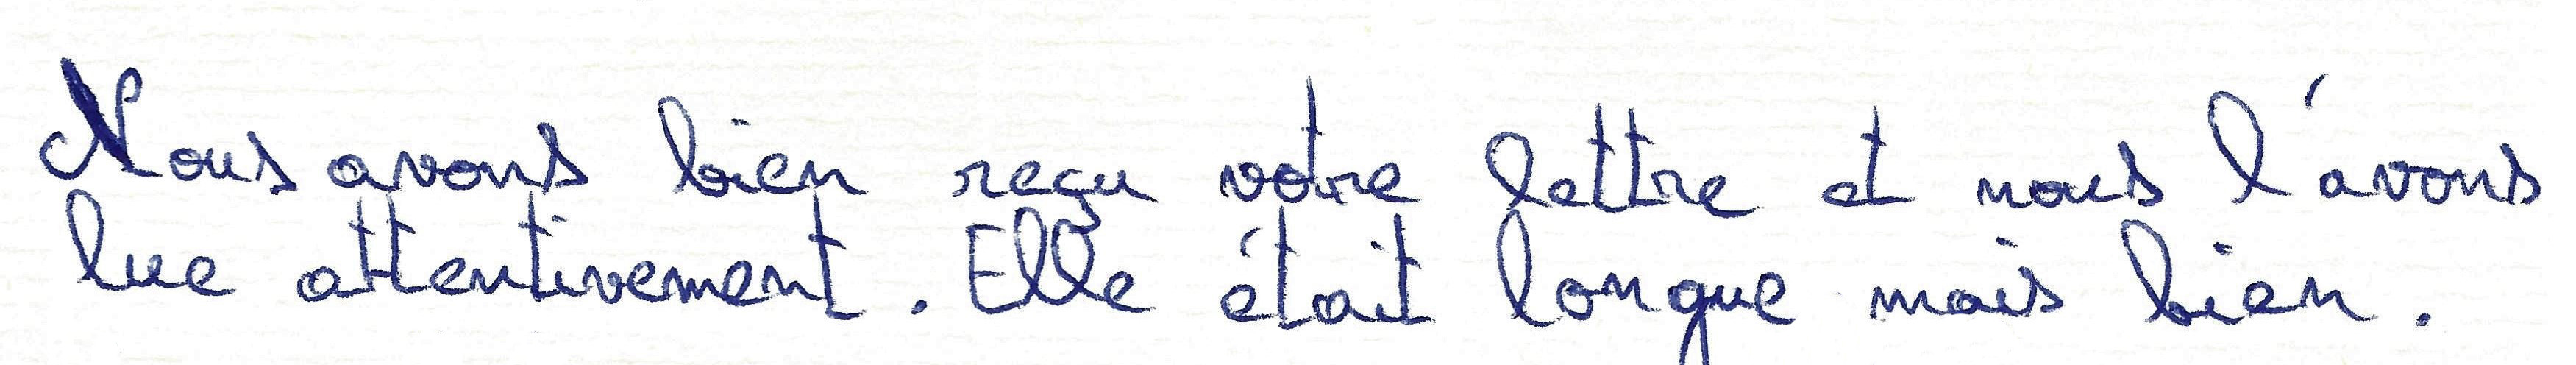 Nous avons bien reçu votre lettre et nous l'avons
lue attentivement. Elle était longue mais bien.